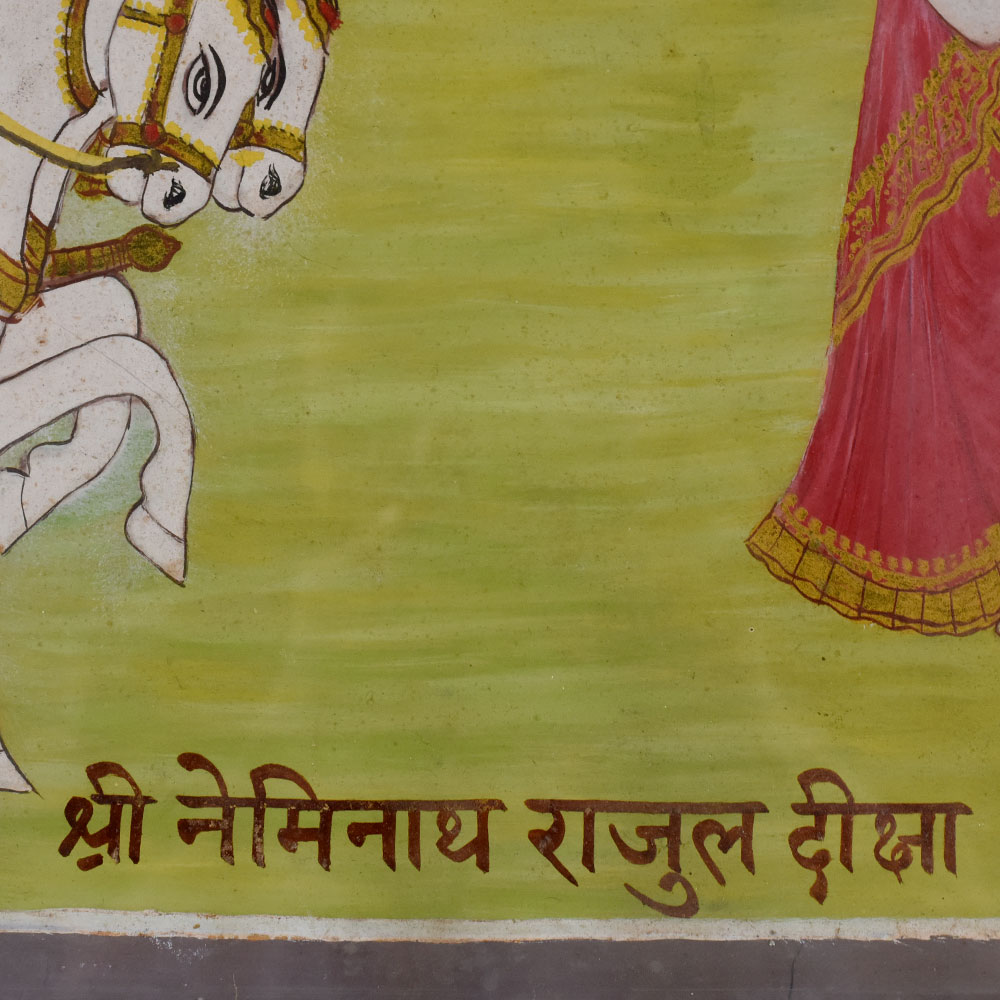 श्री नेमिनाथ राजुल दीक्षा